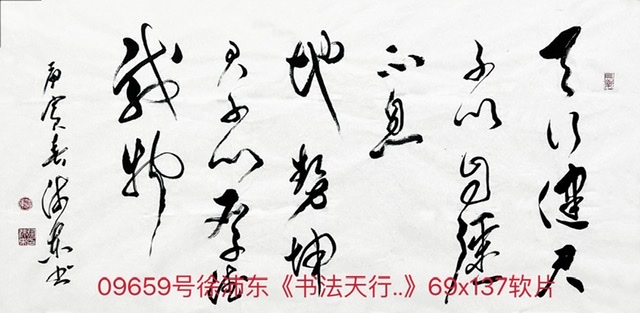 天行健君
子以自强
不息
地势坤
君子以厚德
载物
庚寅春沛东书
09659号徐沛东《书法天行..》69x137软片